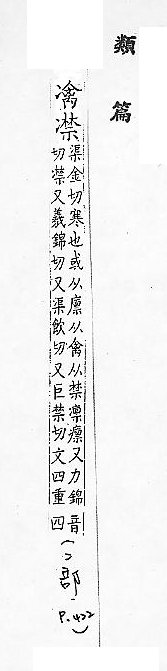 類篇
凚
渠金切寒也或从廩从禽从禁凛又力錦音
切凚又羲錦切又渠飲切又巨禁切文四重四
(冫部.
P.422)